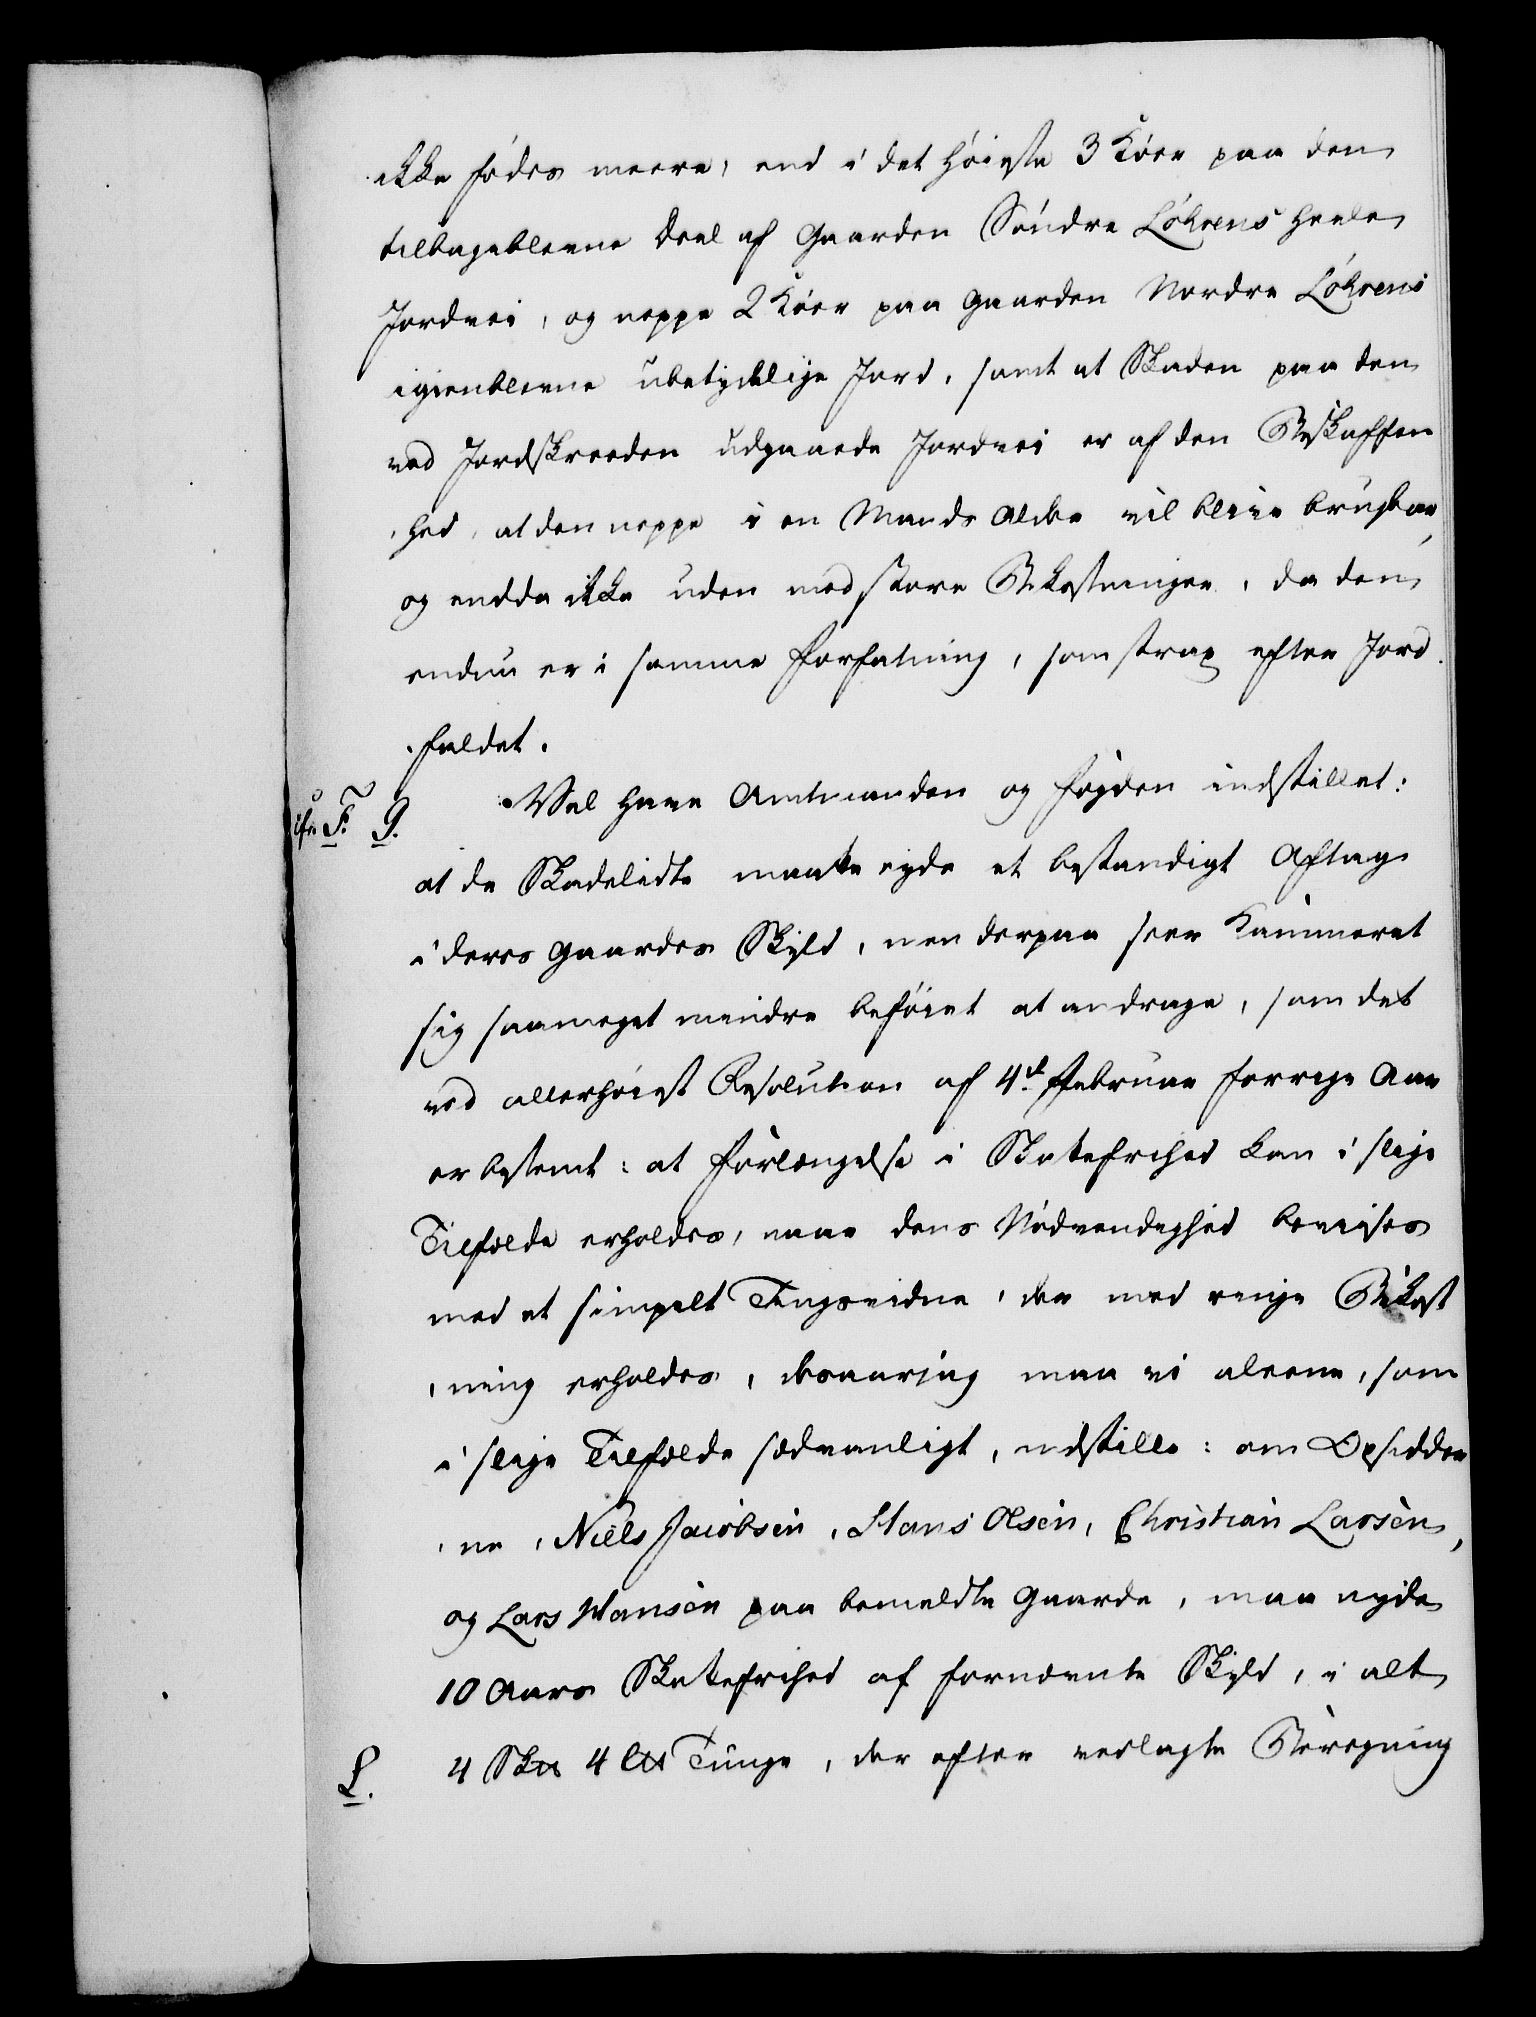 ikke fødes meere, end i det høieste 3 Køer paa den
tilbageblevne Deel af Gaarden Søndre Løhrens heele
Jordvei, og neppe 2 Køer paa Gaarden Nordre Løhrens
igienblevne ubetydelige Jord, samt at Skaden paa den
ved Jordskreeden udgaaede Jordvei er af den Beskaffen
hed, at den neppe i en Mands Alder vil blive brugbar,
og endda ikke uden med store Bekostninger, da den
endnu er i samme Forfatning, som strax efter Jord
faldet.
cfr. F. G. Vel have Amtmanden og Fogden indstillet:
at de Skadelidte maatte nyde et bestandigt Aftag
i deres Gaardes Skyld, men derpaa seer Kammeret
sig saameget mindre beføiet at andrage, som det
ved allerhøiest Resolution af 4d. Februar forrige Aar
er bestemt: at Forlængelse i Skattefrihed kan i slige
Tilfælde erholdes, naar dens Nødvendighed bevises
med et simpelt Tingsvidne, der med ringe Bekost
ning erholdes, desaarsag maa vi aleene, som
i slige Tilfælde sædvanligt, indstille: om Opsidder
ne, Niels Jacobsen, Hans Olsen, Christian Larsen,
og Lars Hansen paa bemeldte Gaarde, maa nyde
10 Aars Skattefrihed af fornævnte Skyld, i alt
L. 4 Sk℔ 4 L℔ Tunge, der efter vedlagte Beregning